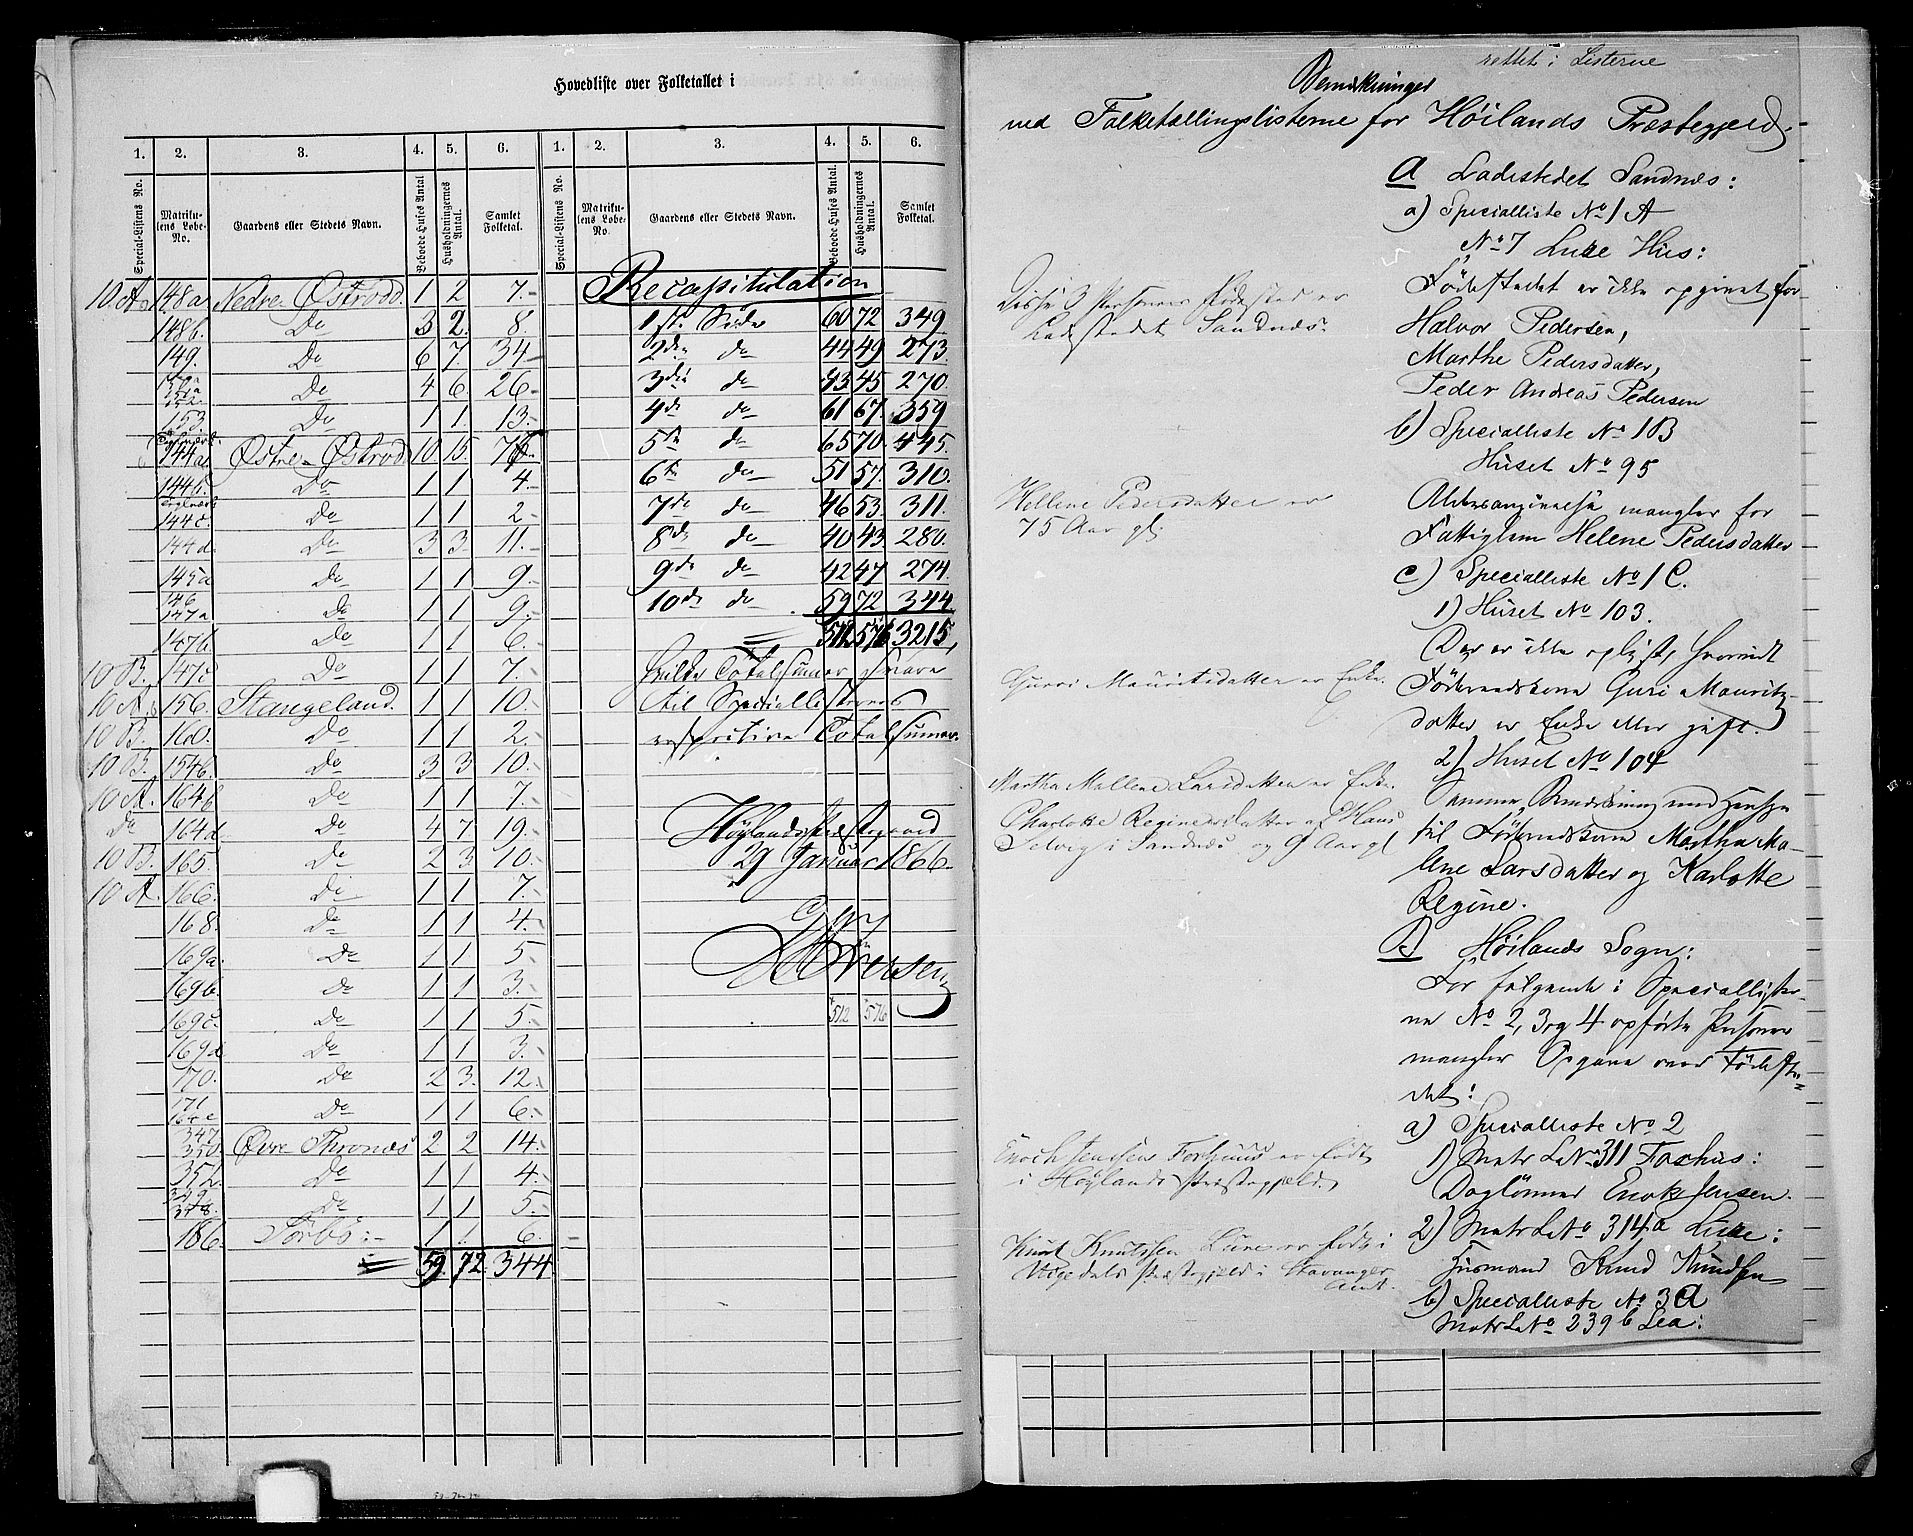 Hovedliste over Folketallet i
1. 2. 3. 4. 5. 6. 1. 2. 3. 4. 5. 6.
Special-Listens No. Matrikulens Løbe-No. Gaardens eller Stedets Navn. Beboede Huses Antal Husholdningernes Antal. Samlet Folketal. Special-Listens No. Matrikulens Løbe-No. Gaardens eller Stedets Navn. Beboede Huses Antal. Husholdningernes Antal. Samlet Folketal.
10.A. 148a Nedre Østrod 1 2 7.
148b. Do 3 2. 8.
149. Do 6 7. 34
Do 4 6. 26
153. Do 1 1. 13.
144a Østre Østrod 10. 15.
144b. Do 1 1 4.
144c. Do 1 1 2
144d. Do 3 3. 11.
145a Do 1 1 9.
146 147a Do 1 1 9.
147b. Do 1 1 6.
10 B. 147c Do 1 1 7.
10 A. 156. Stangeland. 1 1 10.
10 B. 160. Do 1 1 2.
10 B. 154b. Do 3 3 10.
10 A. 164b Do 1 1 7.
Do 164d. Do 4 7. 19.
10 B. 165. Do 2 3. 10.
10 A. 166. Do 1 1 7.
168. Do 1 1 4.
169a. Do 1 1 5
169b. Do 1 1 3.
169c. Do 1 1 5.
169d Do 1 1 3.
170. Do 2 3. 12.
171 164e Do 1 1 6.
347 350. Øvre Thronæs 2 2 14.
352. Do 1 1 4.
349 348. Do 1 1 5.
186. Sørbø 1 1. 6.
59. 72. 344.
Recapitulation
1ste Side 60 72 349
2den do 44 49 273.
3die do 43 45 270.
4de do 61 67. 359
5te do 65 70. 445.
6te do 51 57. 310.
7de do 46 53. 311.
8de do 40 43 280.
9de do 42 47 274.
10de do 59 72 344
512 576 3215,
hvilke Totalsummer svare
til Speciallisternes
respective Totalsummer.
Høylands Præstegaard
29 Januar 1866.
Iversen
512 576
rettet i Listerne
Bemærkninger
ved Folketællingslisterne for Høilands Præstegjeld.
A Ladestedet Sandnæs:
a) Specialliste No 1 A
No 7 Lure Hus:
Fødestedet er ikke opgivet for
Halvor Pedersen,
Marthe Pedersdatter,
Peder Andreas Pedersen
Disse 3 Personers Fødested er
Ladestedet Sandnæs.
b) Specialliste No 1B
Huset No 95
Aldersangivelse mangler for
Fattiglem Helene Pedersdatter
Hellene Pedersdatter er
75 Aar gl.
c) Specialliste No 1 C.
1) Huset No 103.
Der er ikke oplyst, hvorvidt
Føderaadskone Guri Mauritz-
datter er Enke eller gift.
Gurri Mauritsdatter er Enke.
2) Huset No 104
Samme Bemærkning med Hensyn
til Føderaadskone Martha Ma-
lene Larsdatter og Karlotte
Regine.
Martha Mallene Larsdatter er Enke.
Charlotte Reginesdatter af Hans
Selvig i Sandnæs og 9 Aar gl
B Høilands Sogn:
For følgende i Speciallister-
ne No 2, 3 og 4 opførte Personer
mangler Opgave over Fødeste-
det:
a) Specialliste No 2
1) Matr LNo 311 Foshus:
Daglønner Enok Jensen.
Enoch Jensen Foshuus er født
i Høylands Præstegjeld.
2) Matr LNo 314a Lure:
Husmand Knud Knudsen
Knut Knutsen Lure er født i
Vigedals Præstegjeld i Stavanger
Amt.
b) Specialliste No 3a
Matr LNo 239b Lea: